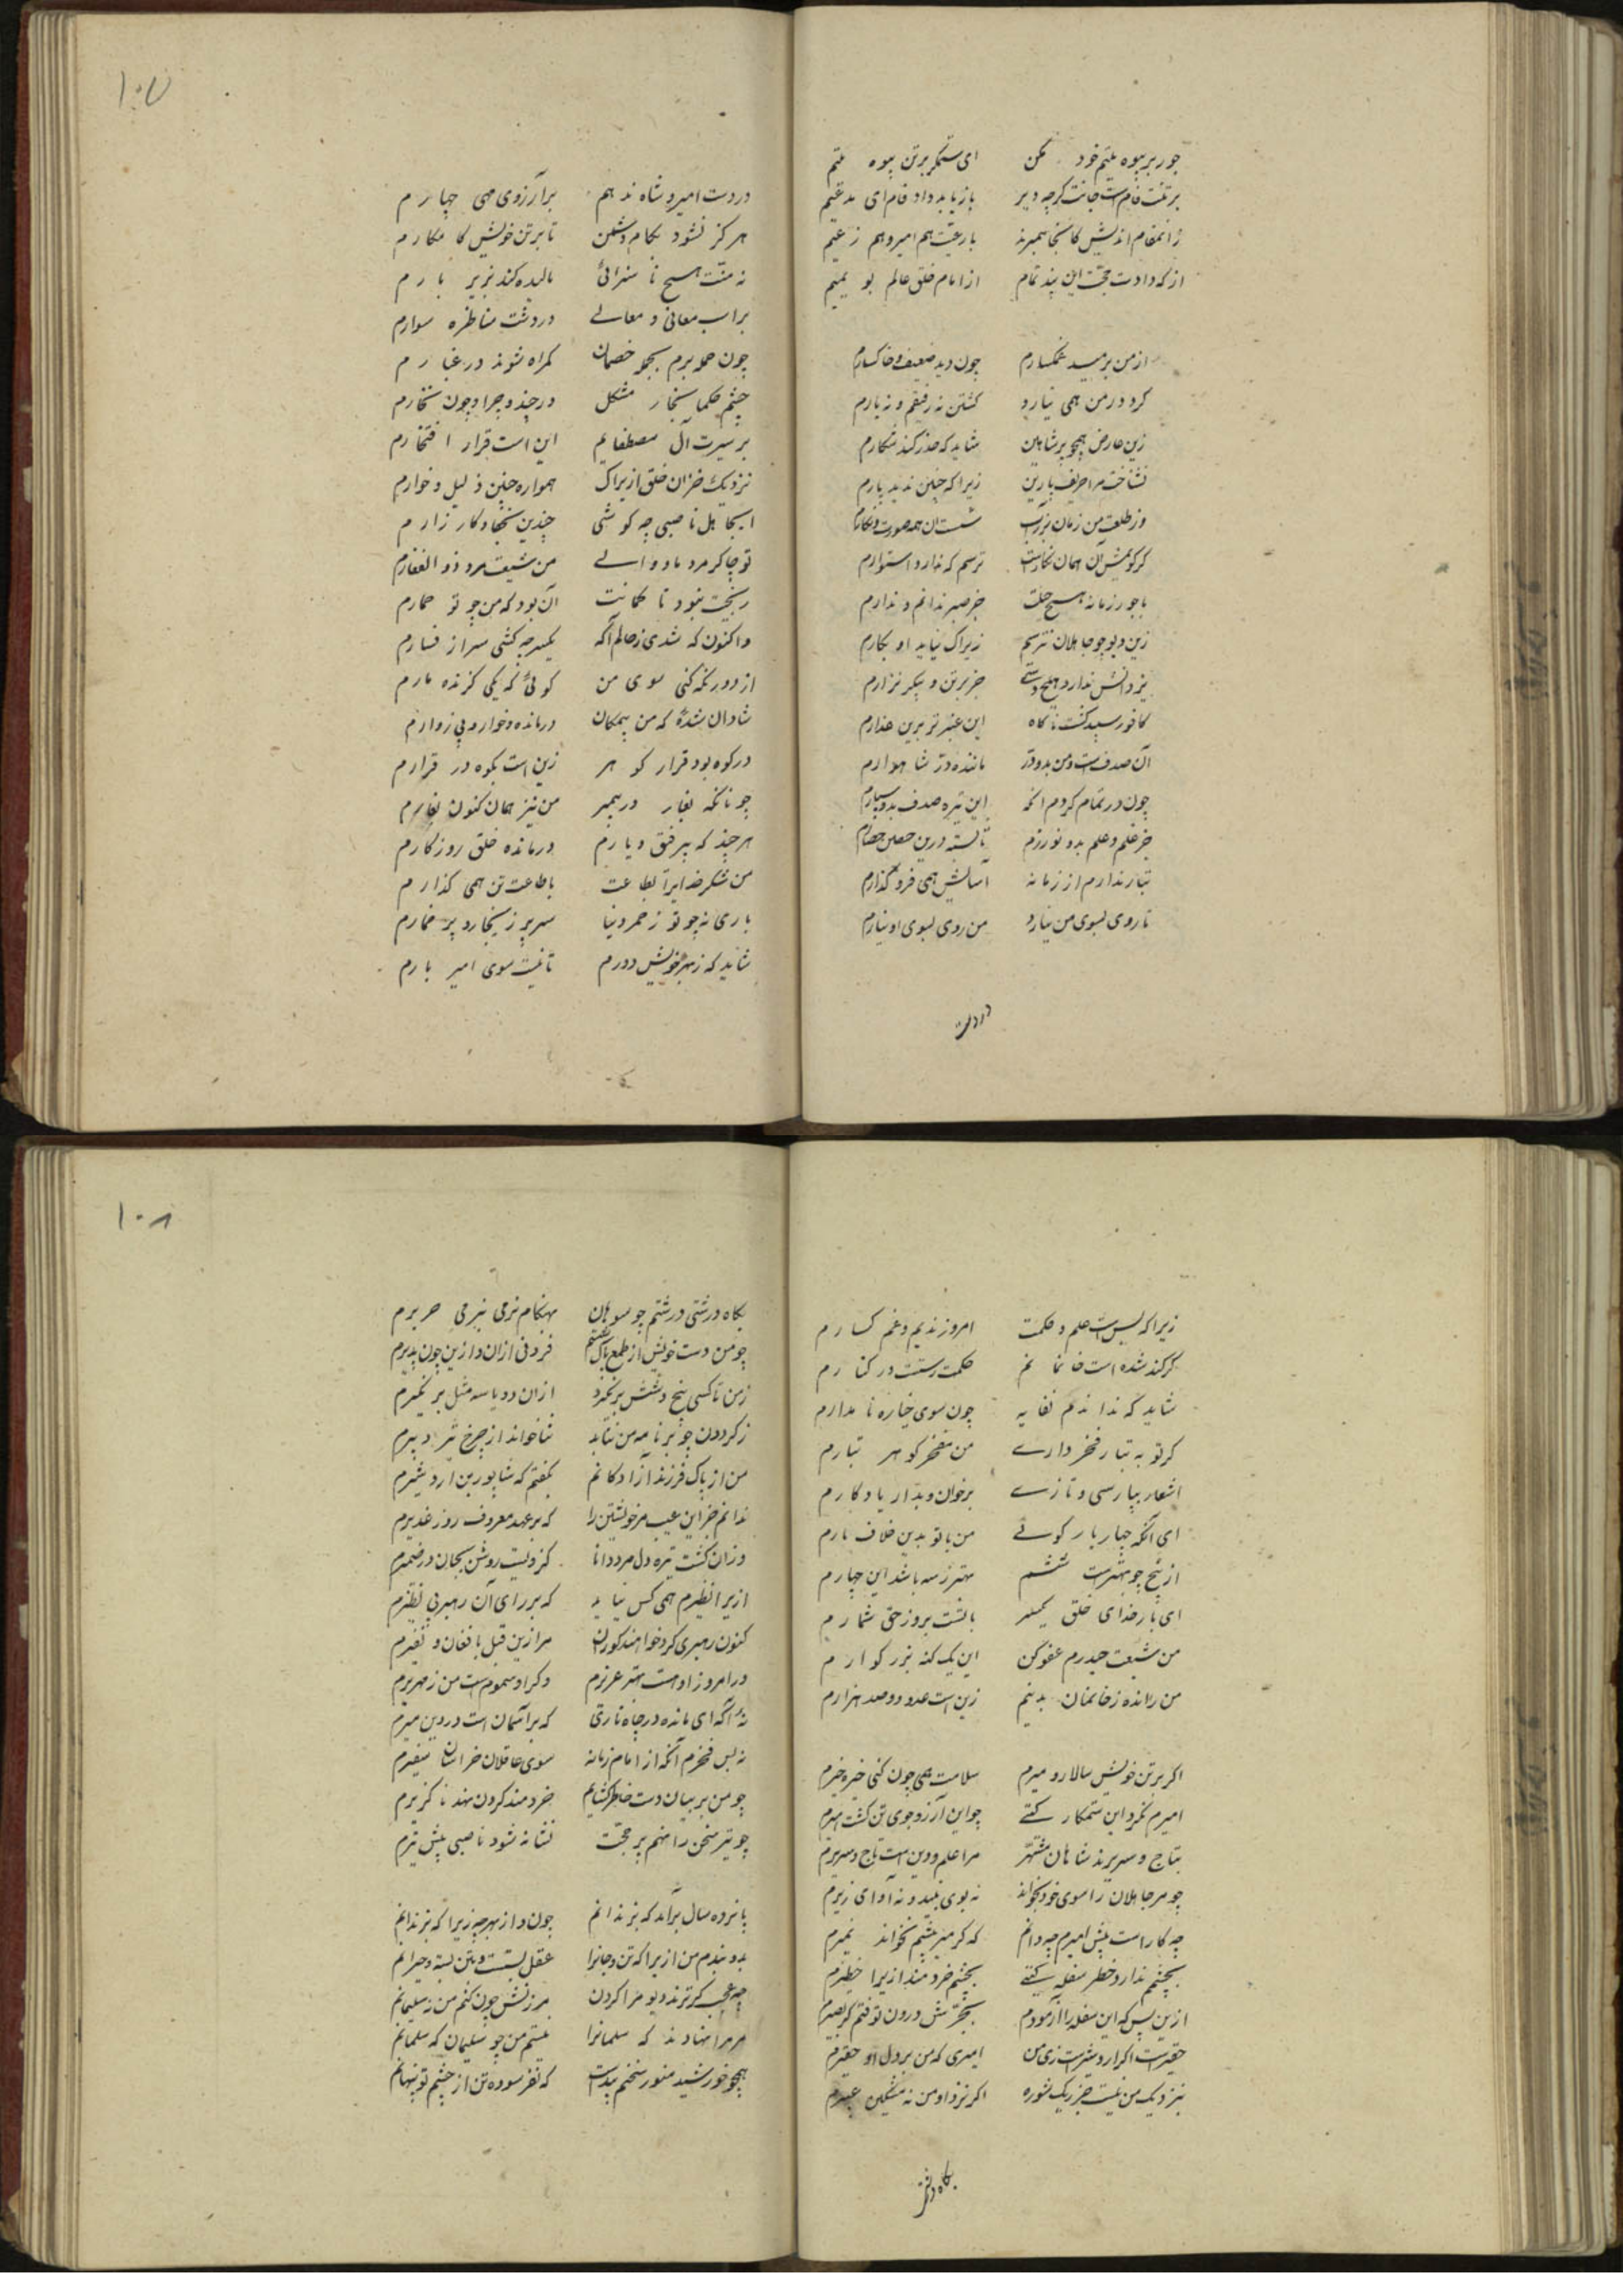 جور بر بیوه یتیم خود مکن ای ستمگر بر تن بیوه یتیم
بر تنت وامست جانت گرچه دیر باز باید داد وام ای
زانمقام اندیش کانجا همبرند با رعیت هم امیر و هم زعیم
از که دادت حجت این پند تمام از امام خلق عالم بو تمیم
از من برمید غمگسارم چون دید ضعیف و خاکسارم
کرد در من همی نیارد گفتن نه رفیقم و نه یارم
زین عارض همچو پر شاهین شاید که حذر کند شکارم
نشناخت مرا حریف پارین زیرا که چنین ندید پارم
وز طلعت من زمان شست آن همه صورت و نگارم
گر گویمش آن همان نگارست ترسم که ندارد استوارم
با جور زمانه هیچ حیلت جز صبر ندانم و ندارم
زین دیو چو جاهلان نترسم زیراک نیاید او بکارم
نزد دانش ندارد هیچ دستی جز بر تن و پیکر نزارم
کافور سپید گشت ناگاه این عنبر تر برین عذارم
آن صدفست و من بدو در ماننده در شاهوارم
چون در تمام گردم آنگه این تیره صدف بدو سپارم
جز علم و عمل بدو نورزم تا بسته درین حصین حصارم
تیمار ندارم از زمانه آسانش همی فرو گذارم
تا روی بسوی من نیارد من روی بسوی او نیارم
در دست
۱۰۷
در دست امیر و شاه ندهم بر آرزوی مهی مهارم
هرگز نشود بکام دشمن تا بر تن خویش کامکارم
نه منت هیچ ناسزائی مالیده کند بزیر بارم
بر اسب معانی و معالی در دشت مناظره سوارم
چون حمله برم بجمله خصمان گمراه شوند در غبارم
چشم حکما بخار مشکل در چند و چرا و چون بخارم
بر سیرت آل مصطفایم این است قرار افتخارم
نزدیک خران خلق ازیراک همواره چنین ذلیل و خوارم
ای جاهل ناصبی چه کوشی چندین بجفا و کارزارم
تو چاکر مرد با دوالی من شیعت مرد ذوالفقارم
رنجت نبود تا گمانت آن بود که من چو تو حمارم
واکنون که شدی ز حالم آگه یکسر چه کشی سر از فسارم
از دور نگه کنی سوی من گوئی که یکی گزنده مارم
شادان شده که من بیمگان درمانده و خوار و بی زوارم
در کوه بود قرار گوهر زین است بکوه در قرارم
چونانکه بغار در پیمبر من نیز همان کنون بغارم
هرچند که بی رفیق و یارم درمانده خلق روزگارم
من شکر خدایرا بطاعت با طاعت تن همی گذارم
باری نه چو تو ز خمر دنیا سر پر ز بخار و پر خمارم
شاید که ز بهر خویش دورم تا نیست سوی امیر بارم
زیرا که بس است علم و حکمت امروز ندیم و غمگسارم
گر کند شده است خان و مانم حکمت رستست در کنارم
شاید که ندا ندهم نفایه چون سوی خیاره نامدارم
گر تو به تبار فخر داری من مفخر گوهر تبارم
اشعار بپارسی و تازی برخوان و بدار یادگارم
ای آنکه چهار یار گوئی من با تو بدین خلاف نارم
از پنج چو بهترست ششم بهتر ز سه باشد این چهارم
ای بارخدای خلق یکسر با تست بروز حق شمارم
من شیعت حیدرم عفو کن این یک گنه بزرگوارم
من رانده ز خانمان بدینم زین است عدو دو صد هزارم
اگر بر تن خویش سالار و میرم ملامت همی چون کنی خیره خیرم
امیرم نکرد این ستمکار گیتی چو این آرزوجوی تن گشت اسیرم
بتاج و سریرند شاهان مشتهر مرا علم و دین است تاج و سریرم
چو مر جاهلان را سوی خود بخواند نه بوی نبید و نه آوای زیرم
چه کار است پیش امیرم چه دانم که گر میر پیشم نخواند نمیرم
بچشمم ندارد خطر سفله گیتی بچشم خردمند ازیرا خطیرم
ازین پس که این سفله را آزمودم بجرش درون نوفتم گر بصیرم
حقیر است اگر اردشیرست زی من امیری که من بر دل او حقیرم
بنزدیک من نیست جز ریگ شوره اگر نزد او من نه مشکین عبیرم
بگاه درشتی
۱۰۸
بگاه درشتی درشتم چو سوهان بهنگام نرمی بنرمی حریرم
چو من دست خویش از طمع پاک شستم فزونی ازان و ازین چون پذیرم
ز من تا کسی پنج و شش برنگیرد ازان دو یا سه مثل برنگیرم
ز گردون چو بر نامه من بتابد ثنا خواند از چرخ تیر دبیرم
من از پاک فرزند آزادگانم نگفتم که شاپور بن اردشیرم
ندانم جز این عیب مر خویشتن را که بر عهد معروف روز غدیرم
وزان گشت تیره دل مرد نادان کزویست روشن بجان در ضمیرم
ازیرا نظیرم همی کس نیابد که بر رای آن رهبر بی نظیرم
کنون رهبری کرد خواهند کوران مرا زین قبل با فغان و نفیرم
ور امروز او هست بهتر عزیزم وگر او سموم است من زمهریرم
نه آگه ای مانده در چاه تاری که بر آسمان است در دین مسیرم
نه بس فخرم آنکه از امام زمانه سوی عاقلان خراسان سفیرم
چو من بر بیان دست خاطر گشایم خردمند گردن نهد ناگزیرم
چو تیر سخن را نهم پر حجت نشانه شود ناصبی پیش تیرم
پانزده سال برآمد که بزندانم چون و از بهر چه زیرا که بزندانم
بدو بندم من ازیرا که تن و جانرا عقل بستست و بتن بسته و حیرانم
چه عجب گر ترند دیو مرا گردن سرزنش چون کنم من نه سلیمانم
مر مرا نهادند که سلمانرا نیستم من چو سلیمان که سلمانم
همچو خورشید منور سخنم پیداست که بفرسوده تن از چشم تو پنهانم